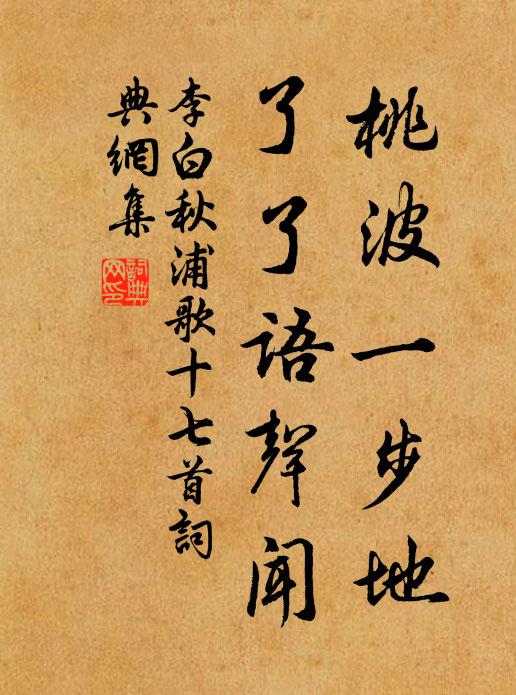 桃波一步地
了了語聲聞
李白秋浦歌十七首詞
典網集
詞典
网印